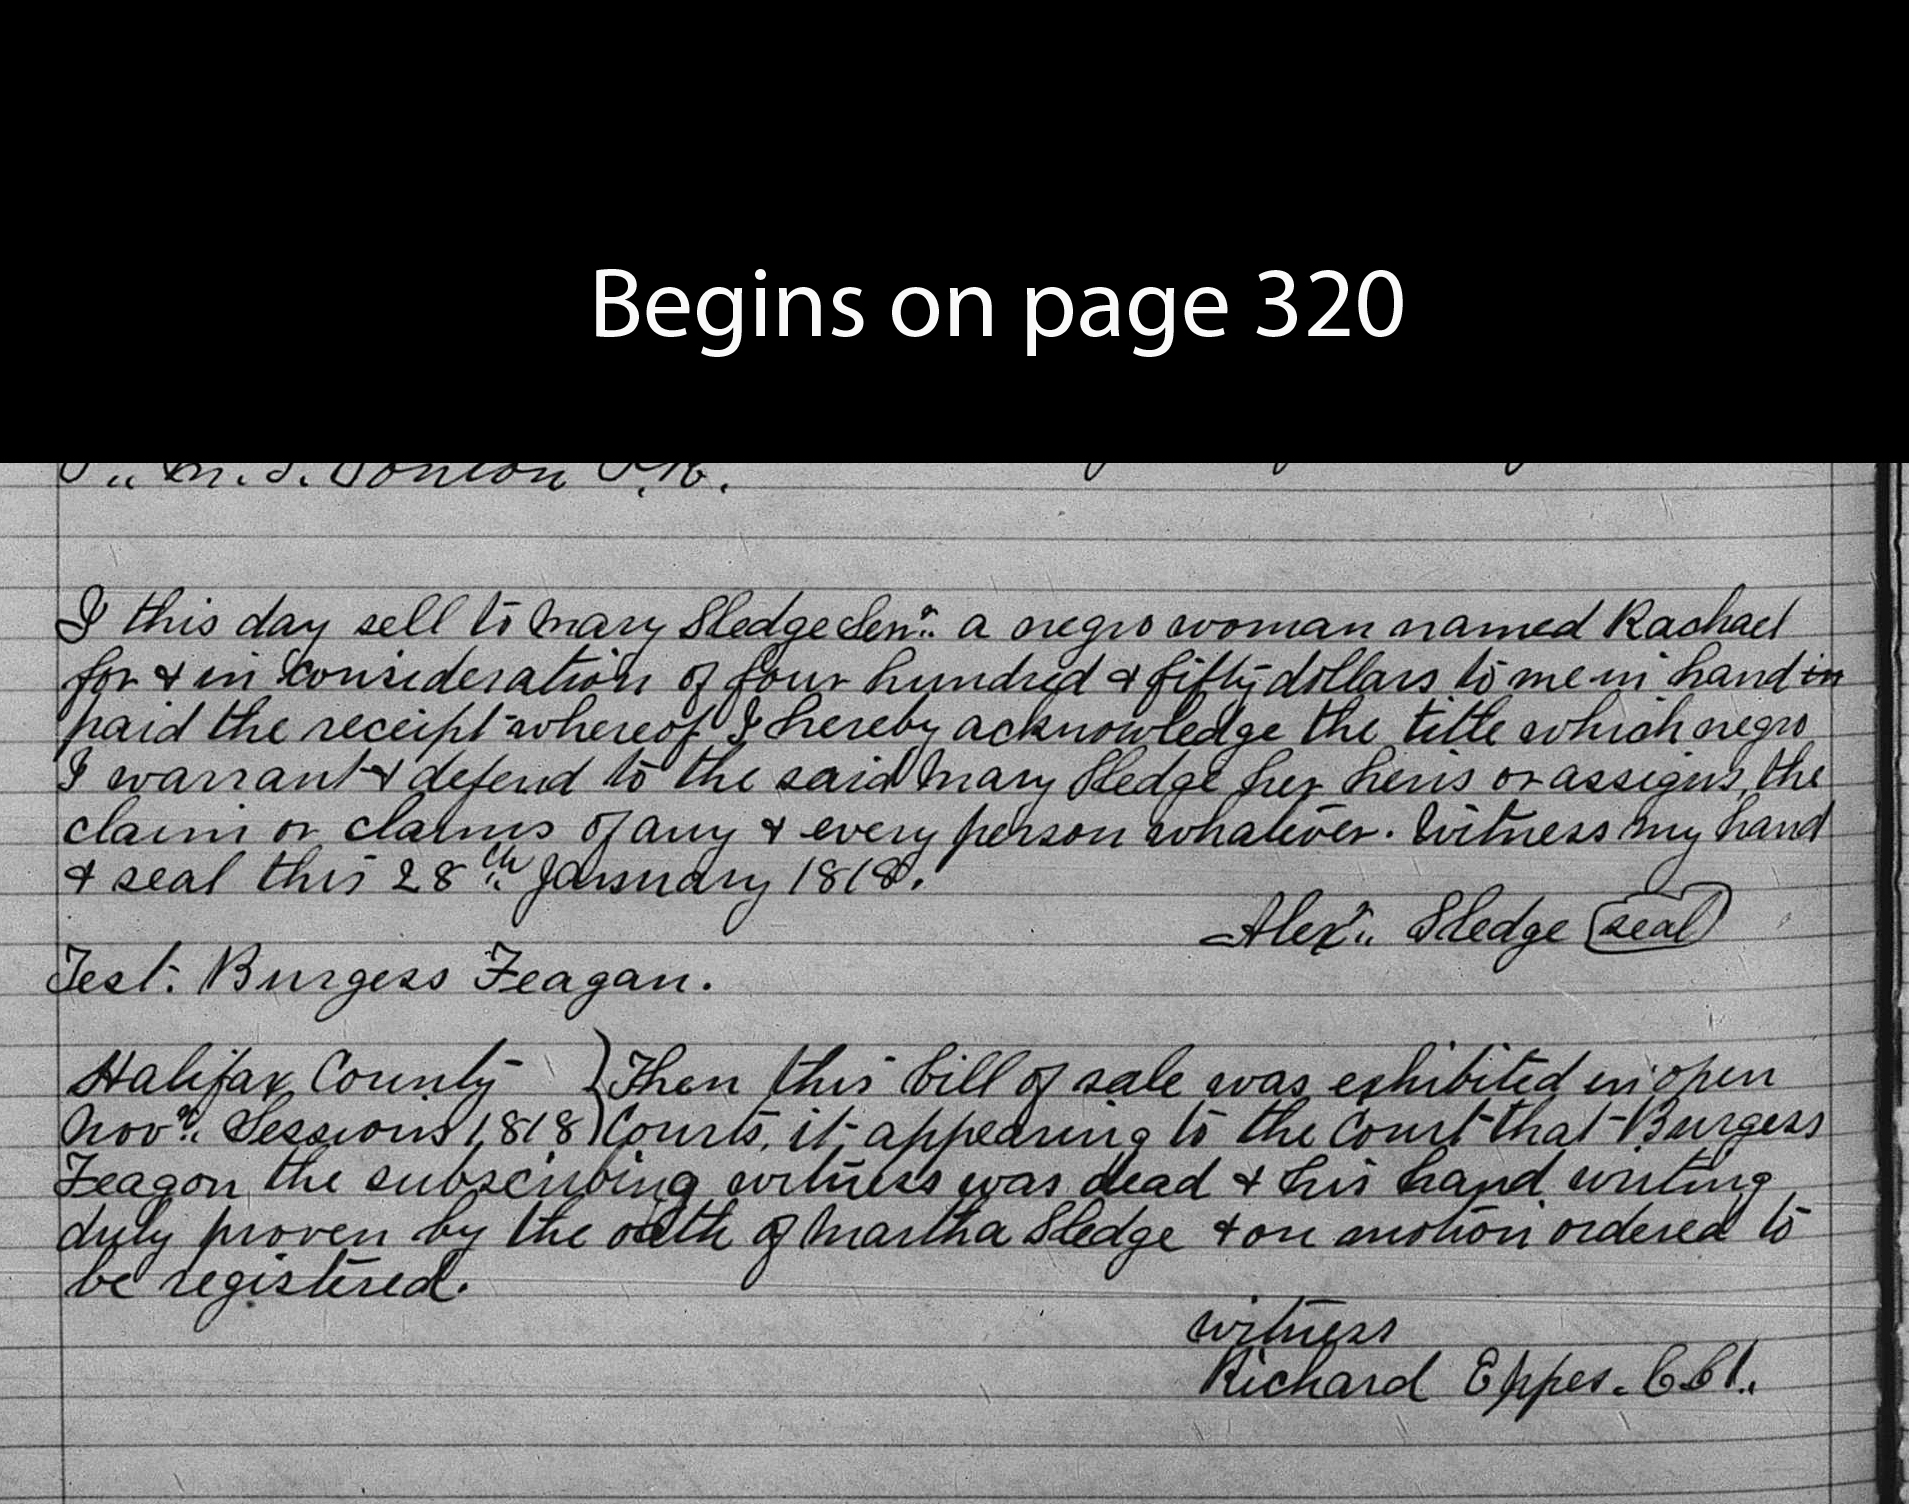 Begins on page 320
I this day sell to Mary Sledge Senr. a negro woman named Rachael
for & in consideration of four hundred & fifty dollars to me in hand in
paid the receipt whereof I hereby acknowledge the title which negro
I warrant & defend to the said Mary Sledge her heirs or assigns, the
claim or claims of any & every person whatever. Witness my hand
& seal this 28th January 1818.
Alexr. Sledge seal
Test: Burgess Feagan.
Halifax County } Then this bill of sale was exhibited in open
Novr. Sessions 1818 } Courts, it appearing to the Court that Burgess
Feagon the subscribing witness was dead & his hand writing
duly proven by the oath of Martha Sledge & on motion ordered to
be registered.
witness
Richard Eppes. C Cl.